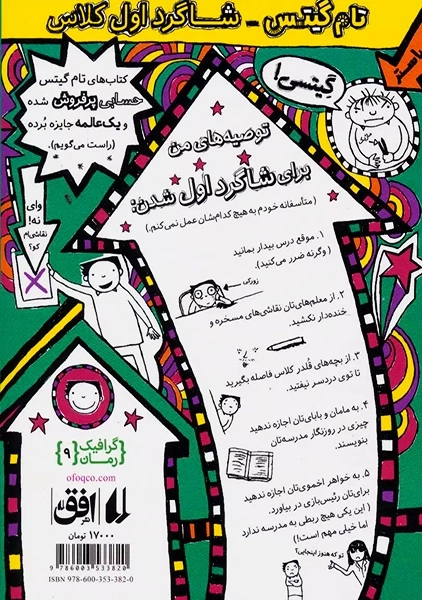 تام گیتس - شاگرد اول کلاس
کتاب‌های تام گیتس
حسابی پرفروش شده
و یک‌عالمه جایزه بُرده
(راست می‌گویم).
گیتسی!
وای
نه!
نقاشی‌ام
کو؟
توصیه‌های من
برای شاگرد اول شدن:
(متأسفانه خودم به هیچ کدام‌شان عمل نمی‌کنم.)
۱. موقع درس بیدار بمانید
(وگرنه ضرر می‌کنید).
زورکی
۲. از معلم‌های‌تان نقاشی‌های مسخره و
خنده‌دار نکشید.
۳. از بچه‌های قُلدر کلاس فاصله بگیرید
تا توی دردسر نیفتید.
۴. به مامان و بابای‌تان اجازه ندهید
چیزی در روزنگار مدرسه‌تان
بنویسند.
۵. به خواهر اخموی‌تان اجازه ندهید
برای‌تان رئیس‌بازی در بیاورد.
(این یکی هیچ ربطی به مدرسه ندارد
اما خیلی مهم است!)
تو که هنوز اینجایی!
گرافیک
رمان
{۹}
ofoqco.com
نشر افق
۱۷۰۰۰ تومان
9 786003 533820
ISBN 978-600-353-382-0